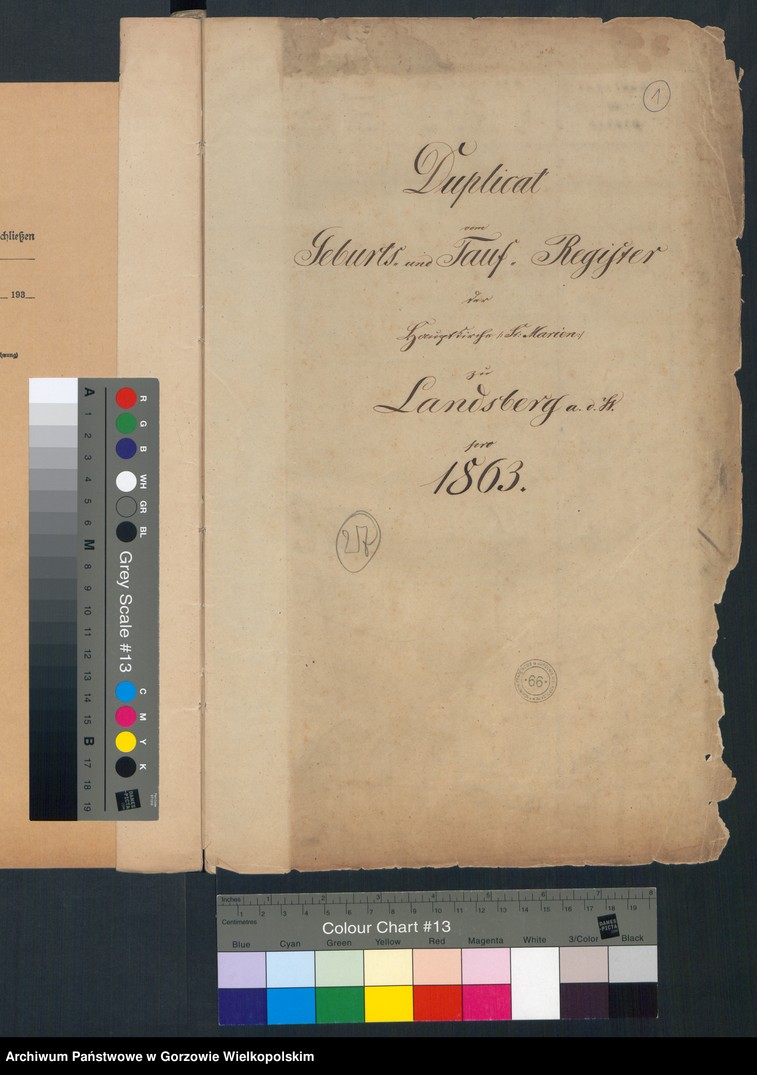 1
Duplicat
vom
Geburts- und Tauf-Register
der
Hauptkirche (St. Marien)
zu
Landsberg a. d. W.
pro
1863.
27
66
chließen
193
A 1 2 3 4 5 6 M 8 9 10 11 12 13 14 15 B 17 18 19
R G B WH GR BL
Grey Scale #13
C M Y K
DANES PICTA
Inches 1 2 3 4 5 6 7 8
Centimetres 1 2 3 4 5 6 7 8 9 10 11 12 13 14 15 16 17 18 19
Colour Chart #13
DANES PICTA
Blue Cyan Green Yellow Red Magenta White 3/Color Black
Archiwum Państwowe w Gorzowie Wielkopolskim